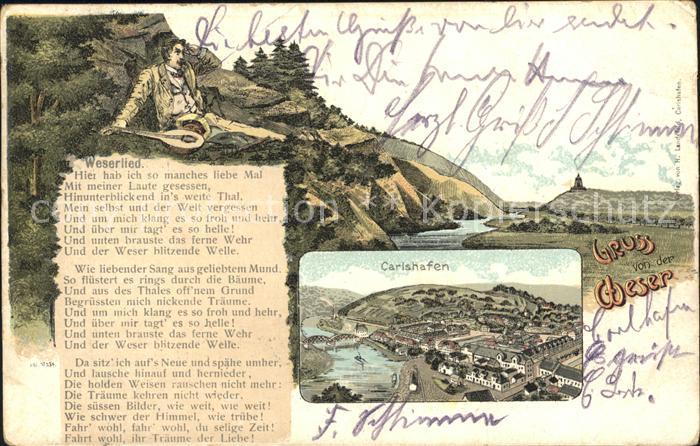 Die besten Grüße von hier sendet
Herzl. Gruß
Weserlied.
Hier hab ich so manches liebe Mal
Mit meiner Laute gesessen,
Hinunterblickend in's weite Thal,
Mein selbst und der Welt vergessen
Und um mich klang es so froh und hehr,
Und über mir tagt' es so helle!
Und unten brauste das ferne Wehr
Und der Weser blitzende Welle.
Wie liebender Sang aus geliebtem Mund.
So flüstert es rings durch die Bäume,
Und aus des Thales off'nem Grund
Begrüssten mich nickende Träume.
Und um mich klang es so froh und hehr,
Und über mir tagt' es so helle!
Und unten brauste das ferne Wehr
Und der Weser blitzende Welle.
Da sitz' ich auf's Neue und spähe umher,
Und lausche hinauf und hernieder,
Die holden Weisen rauschen nicht mehr:
Die Träume kehren nicht wieder,
Die süssen Bilder, wie weit, wie weit!
Wie schwer der Himmel, wie trübe!
Fahr' wohl, fahr' wohl, du selige Zeit!
Fahrt wohl, ihr Träume der Liebe!
Gruss
von der
Weser
Carlshafen
Carlshafen
F. Schlimme